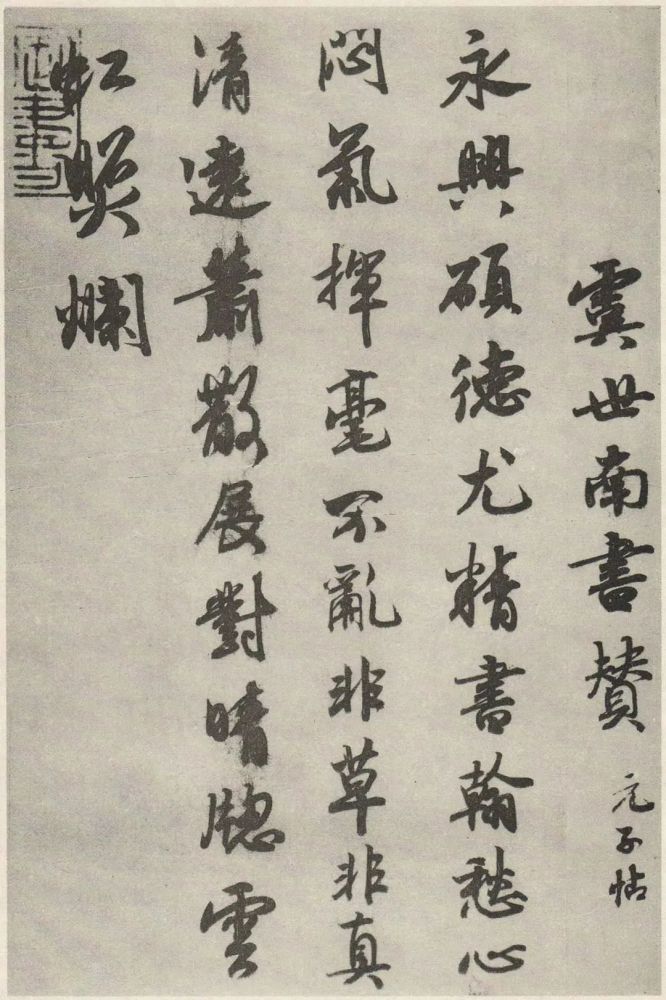 虞世南書贊 元子帖
永興碩德尤精書翰愁心
悶氣揮毫不亂非草非真
清遠蕭散展對晴牕雲
虹照爛